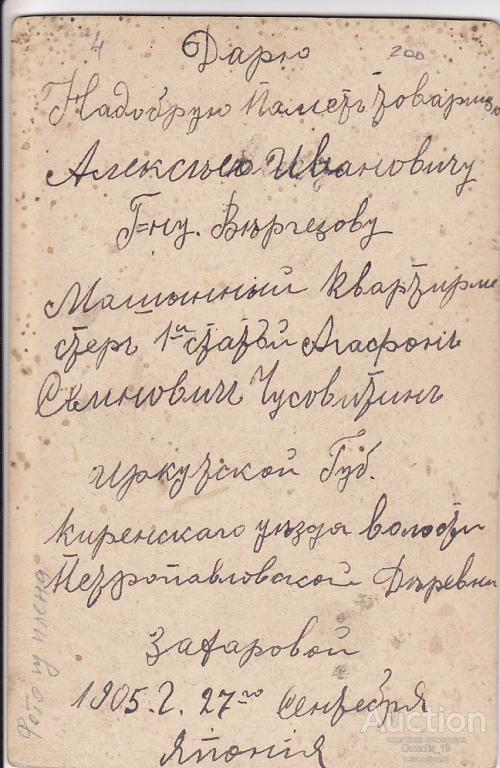 4
200
Дарю
Надобрую Паметъ товарищу
Алексѣю Ивановичу
Г=ну. Вѣргезову
Машынный квартирме
стеръ 1й статьи Агафонъ
Сѣмновичъ Чусовитинъ
Иркутской Губ.
Киренскаго уѣзда волости
Петропавловской Дѣревни
Захаровой
1905. г. 27го Сентебря
Японія
Фото из плена
Auction